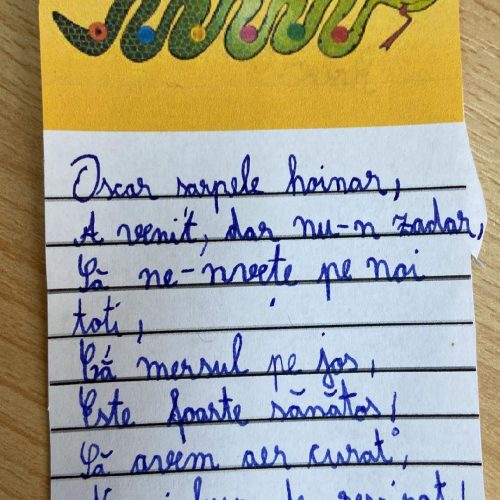 Oscar șarpele hoinar,
A venit, dar nu-n zadar,
Să ne-nvețe pe noi
toți,
Că mersul pe jos,
Este foarte sănătos!
Să avem aer curat,
bun de respirat!